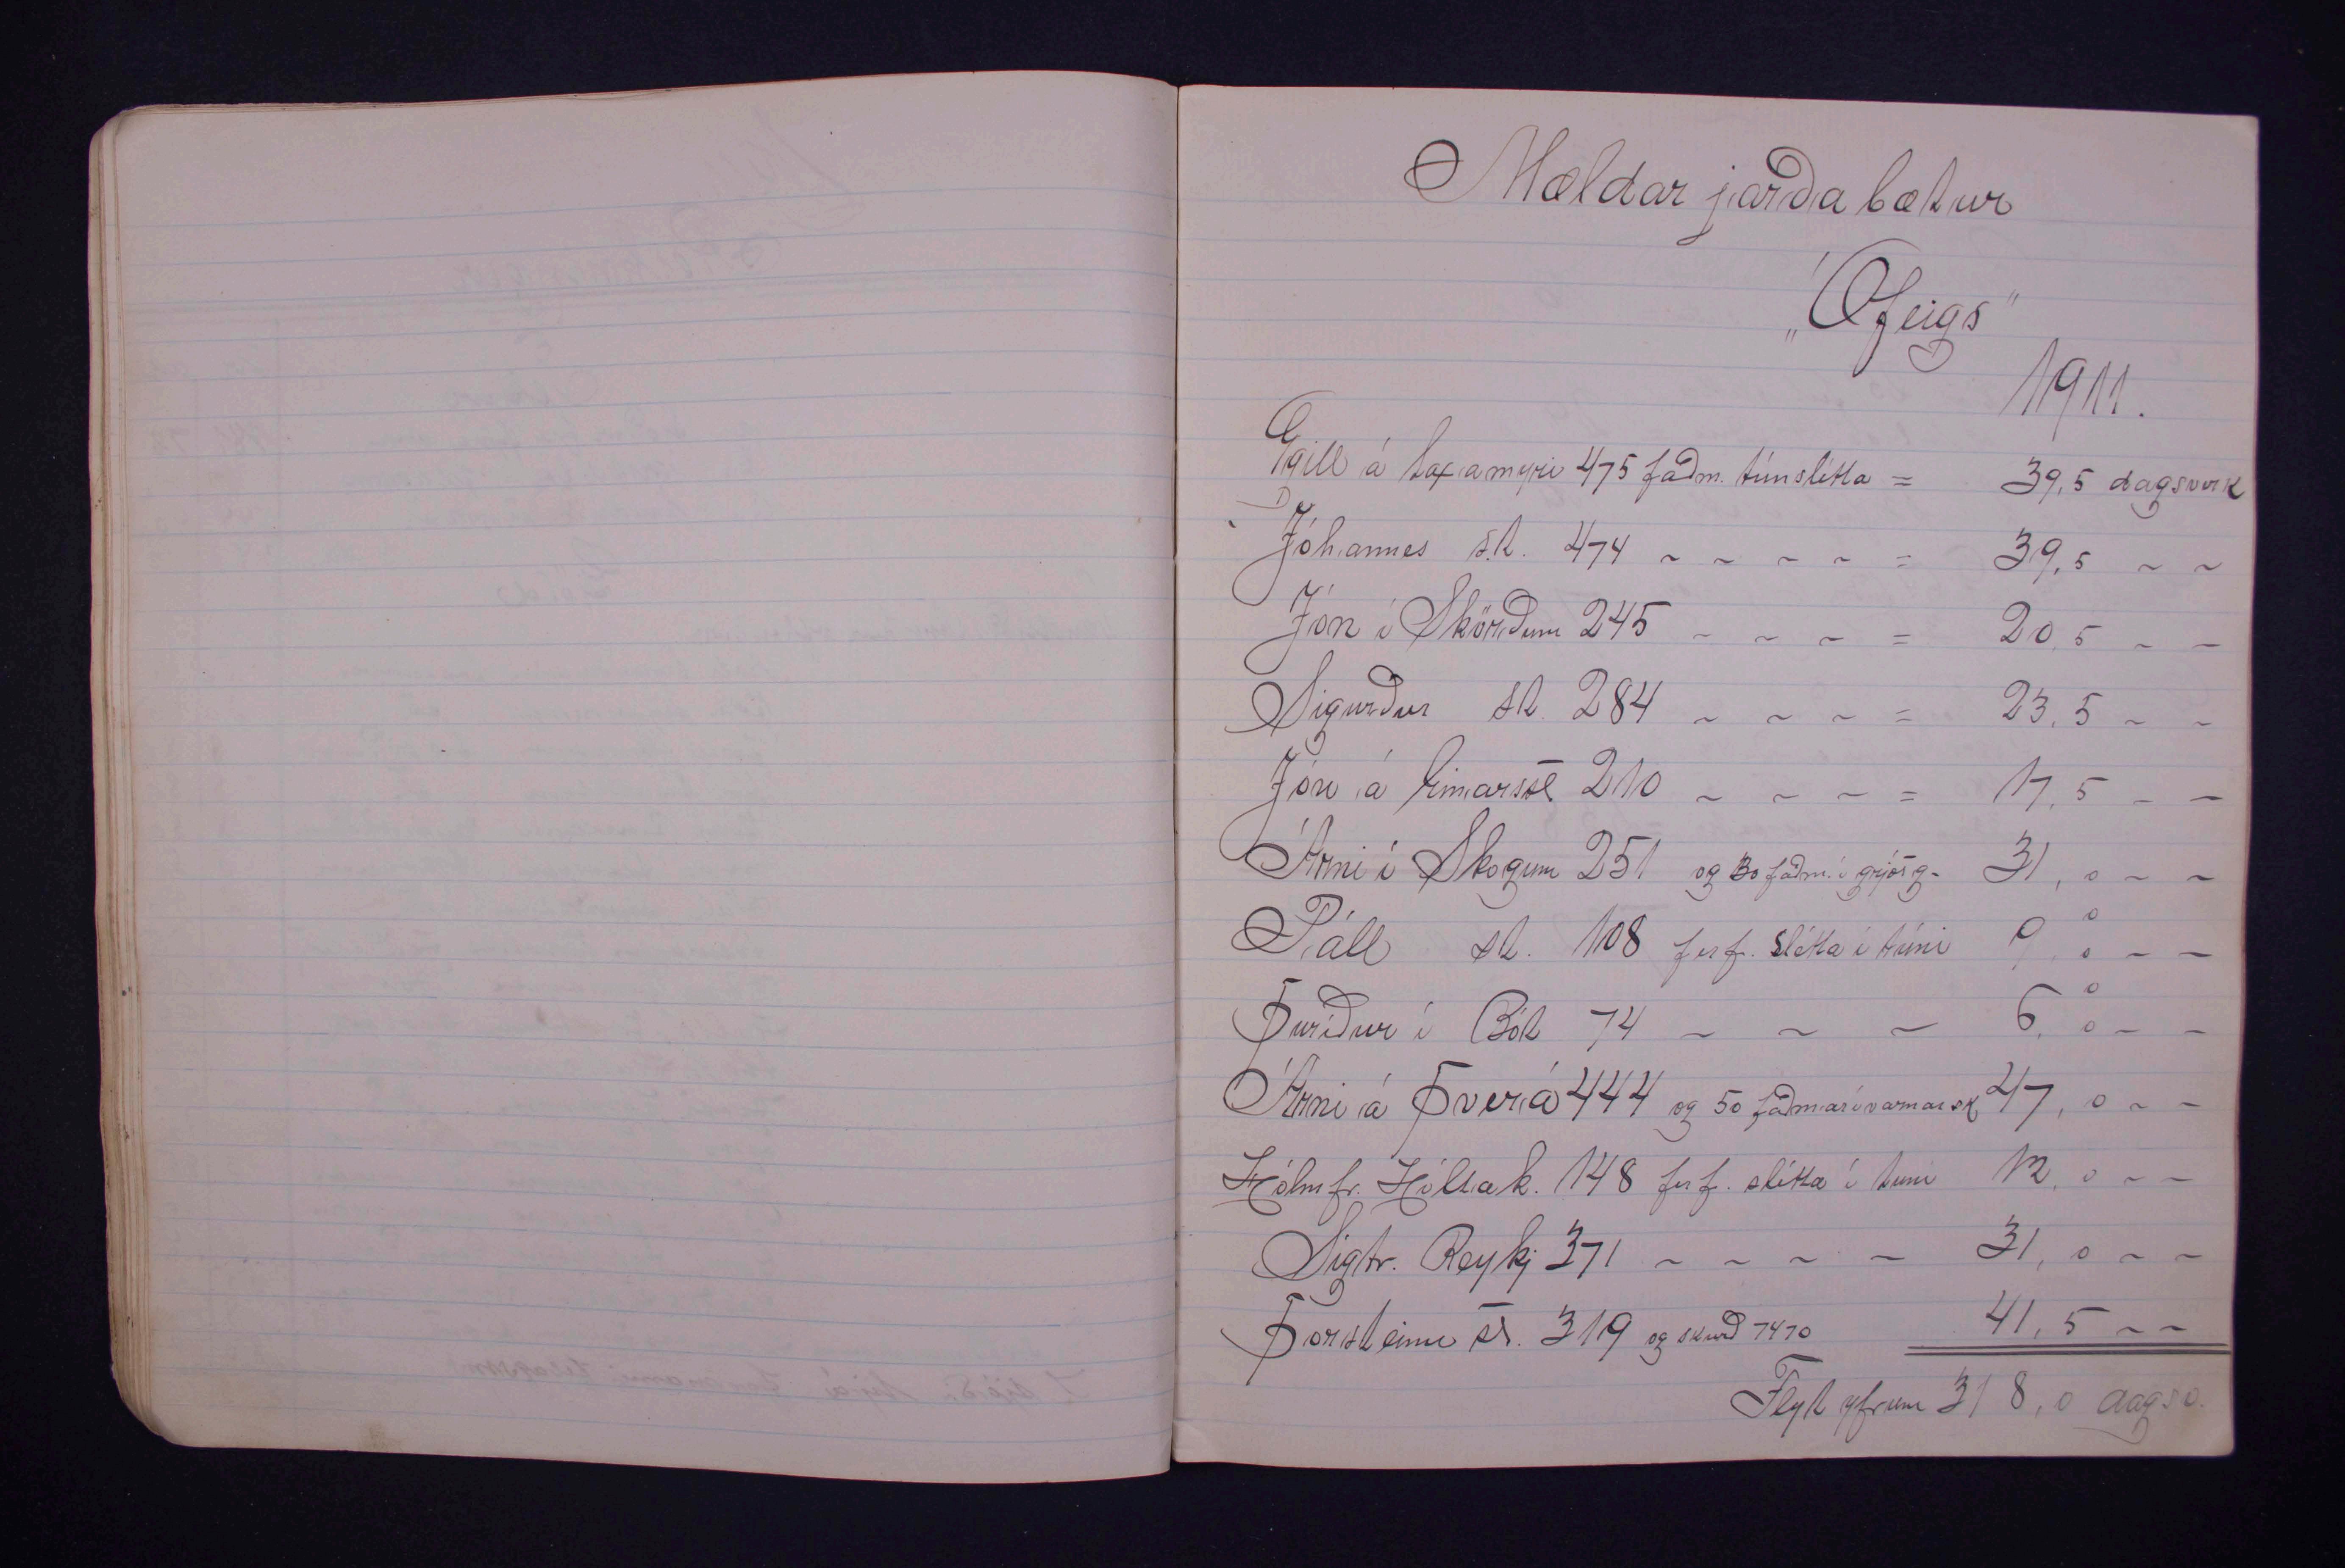 Mældar jarðabætur
„Ófeigs"
1911.
Egill á Laxamýri 475 faðm. túnslétta = 39,5 dagsverk
Jóhannes s.st. 474 ~ ~ ~ ~ = 39,5 ~ ~
Jón í Skörðum 245 ~ ~ ~ = 20,5 ~ ~
Sigurður st. 284 ~ ~ ~ = 23,5 ~ ~
Jón á 210 ~ ~ ~ = 17,5 ~ ~
Árni í Skógum 251 og 30 faðm. í grjótg- 31,0 ~ ~
Páll st. 108 ferf. slétta í túni 9,0 ~ ~
Þuríður í Bót 74 ~ ~ ~ 6,0 ~ ~
Árni á Þverá 444 og 50 faðmar í varnarsk 47,0 ~ ~
Hólmfr. Höltak. 148 ferf. slétta í túni 12,0 ~ ~
Sigtr. Reykj 371 ~ ~ ~ ~ 31,0 ~ ~
Þorsteinn st. 319 og skurð 7470 41,5 ~ ~
Flyt yfrum 318,0 dagsv.